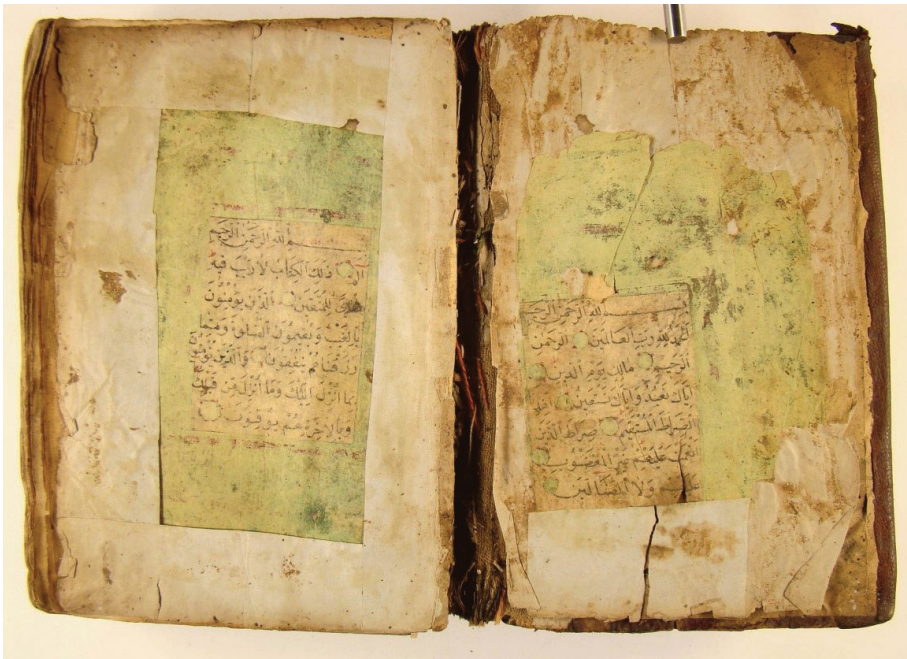 بسم الله الرحمن الرحيم
الحمد لله رب العالمين الرحمن
الرحيم مالك يوم الدين
اياك نعبد واياك نستعين اهدنا
الصراط المستقيم صراط الذين
انعمت عليهم غير المغضوب
عليهم ولا الضالين
بسم الله الرحمن الرحيم
الم ذلك الكتاب لا ريب فيه
هدى للمتقين الذين يؤمنون
بالغيب ويقيمون الصلوة ومما
رزقناهم ينفقون والذين يؤمنون
بما انزل اليك وما انزل من قبلك
وبالاخرة هم يوقنون